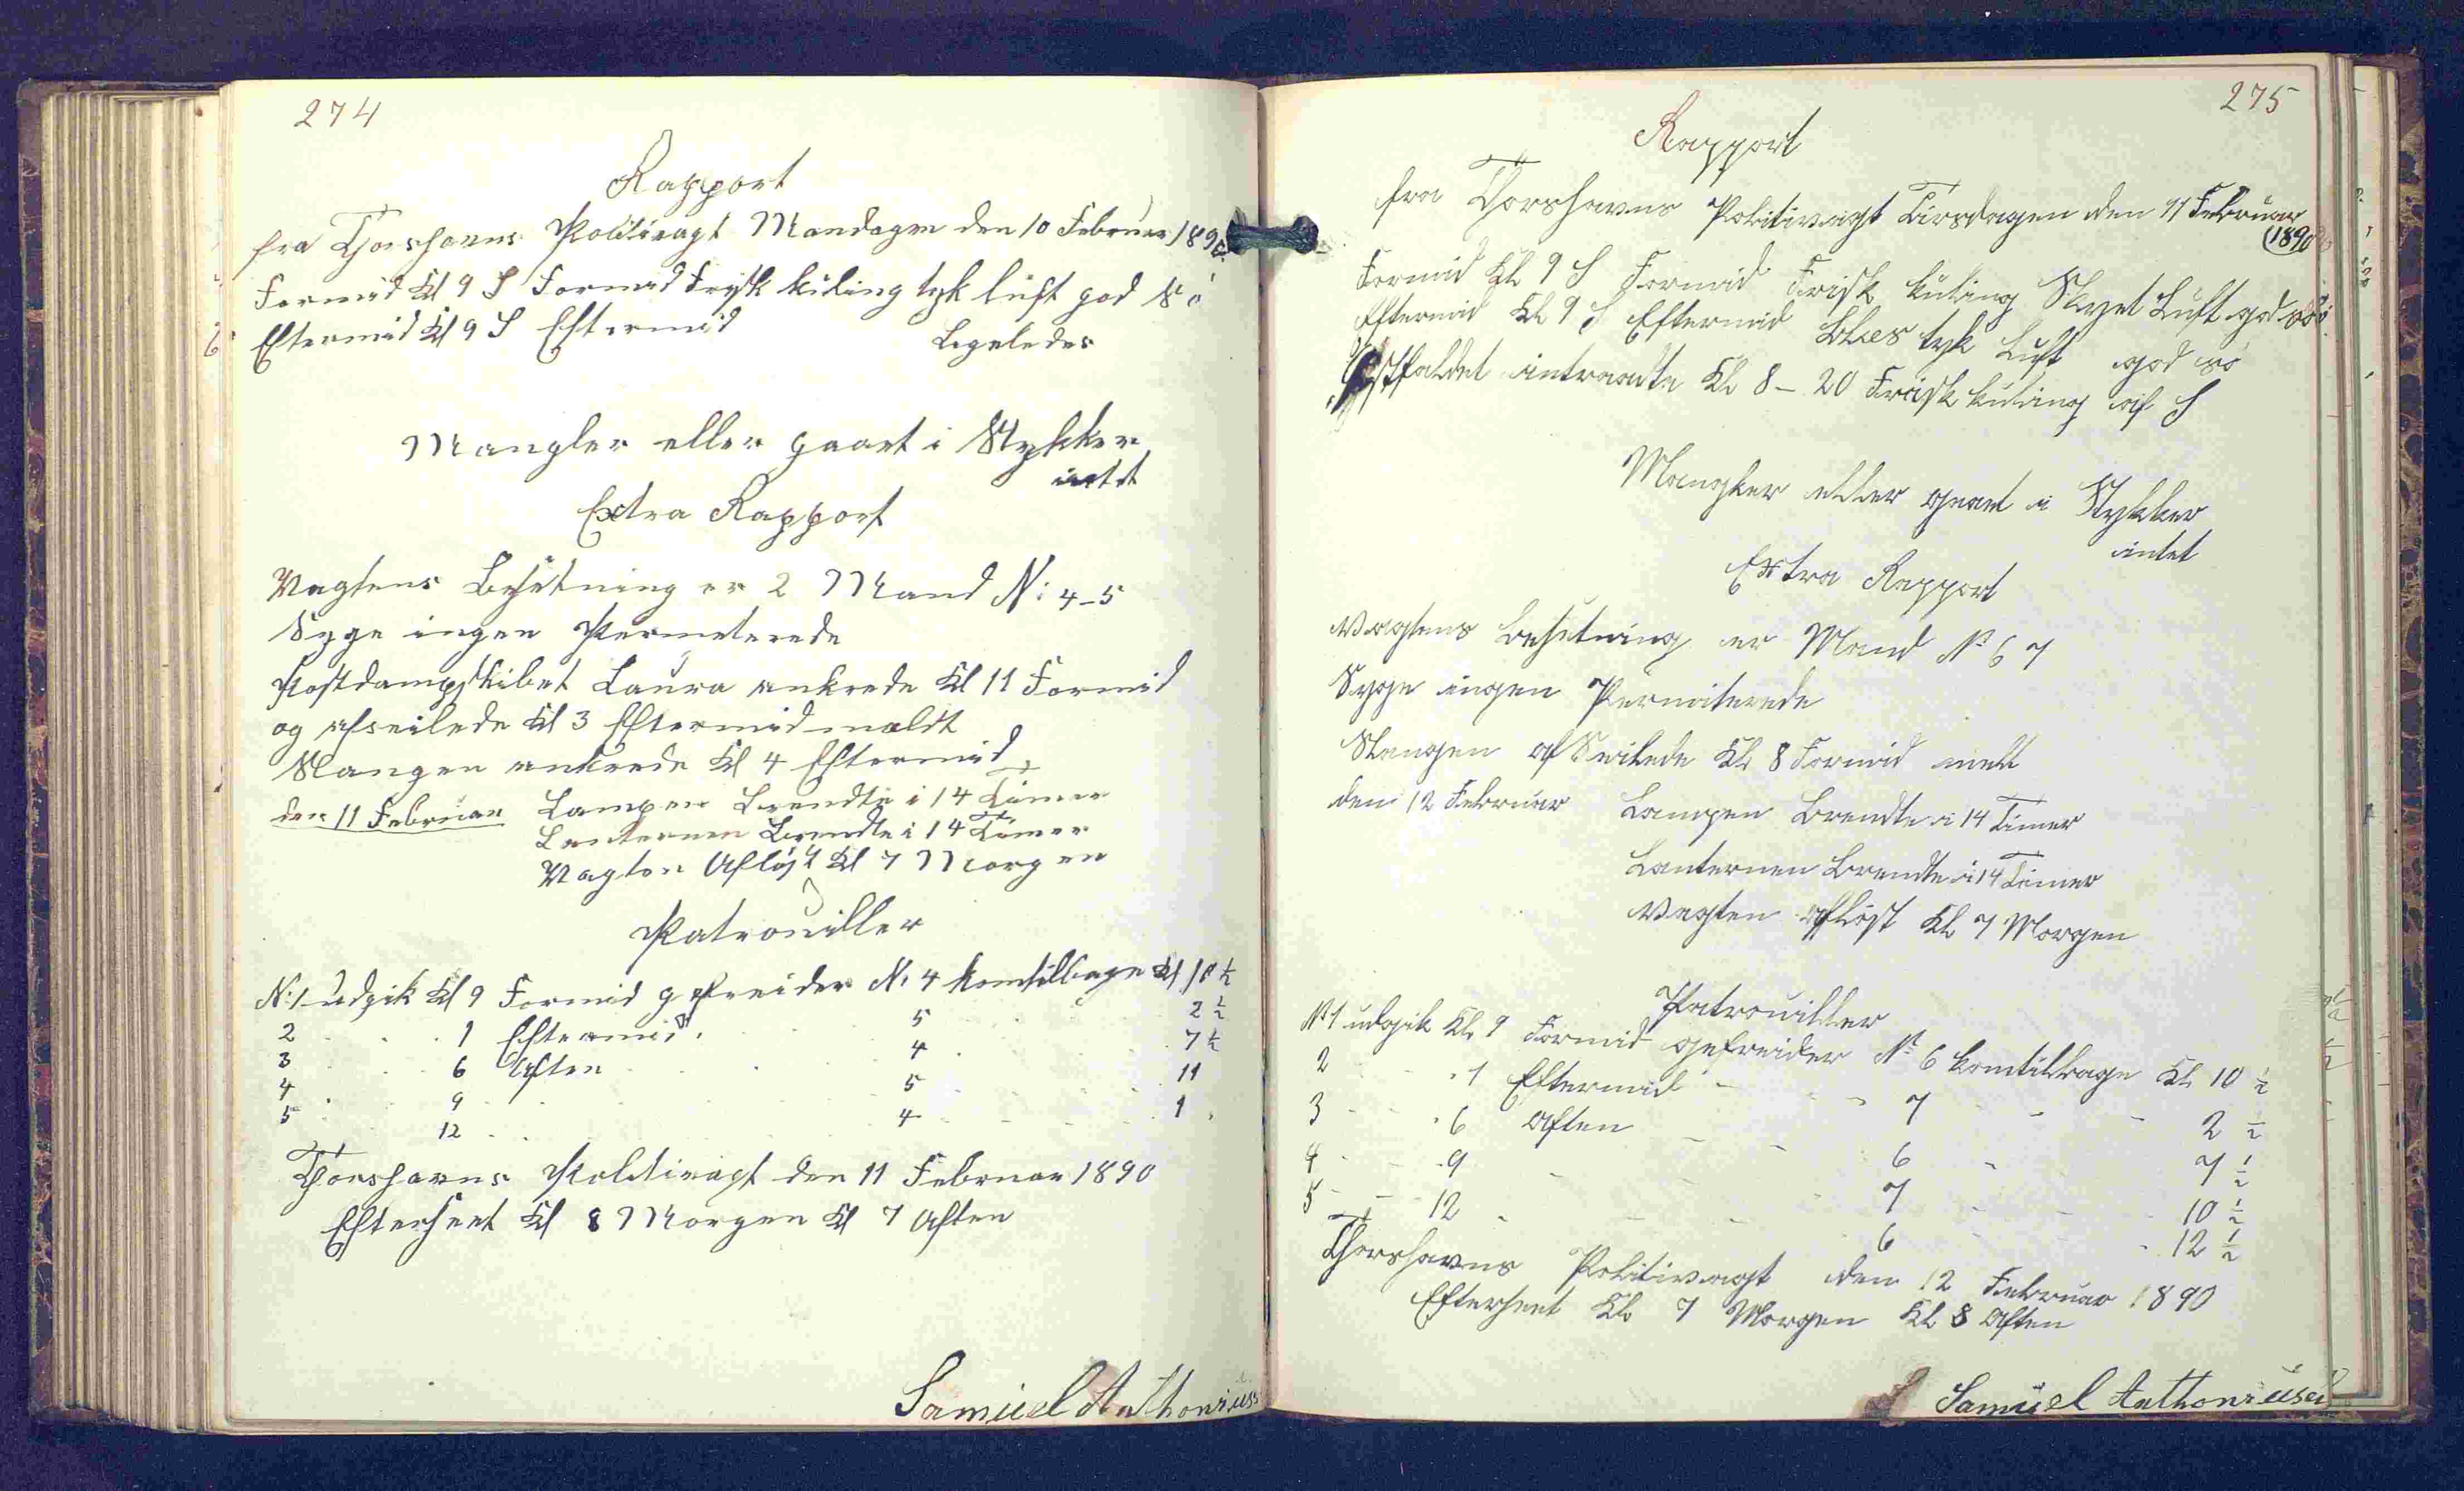 274
Rapport
fra Thorshavns Politivagt Mandagen den 10 Februar 1890.
Formid Kl 9 S Formid Frisk kuling tyk luft god Sö
Eftermid Kl 9 S Eftermid Ligeledes
Mangler eller gaaet i Stykker
intet
Extra Rapport
Vagtens Besetning er 2 Mand N: 4-5
Syge ingen Permeterede
Postdampskibet Laura ankrede Kl 11 Formid
og afseilede Kl 3 Eftermid
Slangen ankrede Kl 4 Eftermid
den 11 Februar Lampen Brendte i 14 Timer
Lanternen Brendte i 14 Timer
Vagten Aflöst Kl 7 Morgen
Patrouiller
N: 1 udgik Kl 9 Formid gefreider N: 4 komtilbage Kl 10 1/2
2 1 Eftermid 5 2 1/2
3 6 Aften 4 7 1/2
4 9 5 11
5 12 4 1
Thorshavns Politivagt den 11 Februar 1890
Efterseet Kl 8 Morgen Kl 7 Aften
Samuel Anthoniuss
275
Rapport
fra Thorshavns Politivagt Tirsdagen den 11 Februar
1890
Formid Kl 9 S Formid Frisk kuling Skyet Luft god sö
Eftermid Kl 9 S Eftermid Blæs tyk Luft god sö
intraadte Kl 8-20 Frisk kuling af S
Mangler eller gaaet i Stykker
intet
Extra Rapport
Vagtens Besetning er Mand No 6 7
Syge ingen Permiterede
Slangen af Seilede Kl 8 Formid
den 12 Februar Lampen Brendte i 14 Timer
Lanternen Brendte i 14 Timer
Vagten aflöst Kl 7 Morgen
Patrouiller
No 1 udgik Kl 9 Formid gefreider No 6 komtilbage Kl 10 1/2
2 1 Eftermid 7 2 1/2
3 6 Aften 6 7 1/2
4 9 7 10 1/2
5 12 6 12 1/2
Thorshavns Politivagt den 12 Februar 1890
Efterseet Kl 7 Morgen Kl 8 Aften
Samuel Anthoniusen